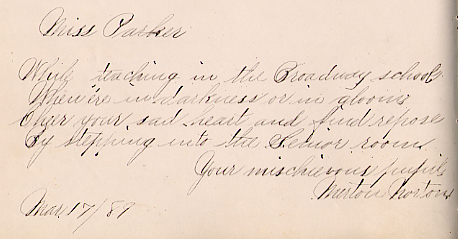 Miss Parker
While teaching in the Broadway school
When e're in darkness or in gloom
Cheer your sad heart and find repose
By stepping into the Senior room.
Your mischievous pupil
Merton Norton
Mar. 17/87